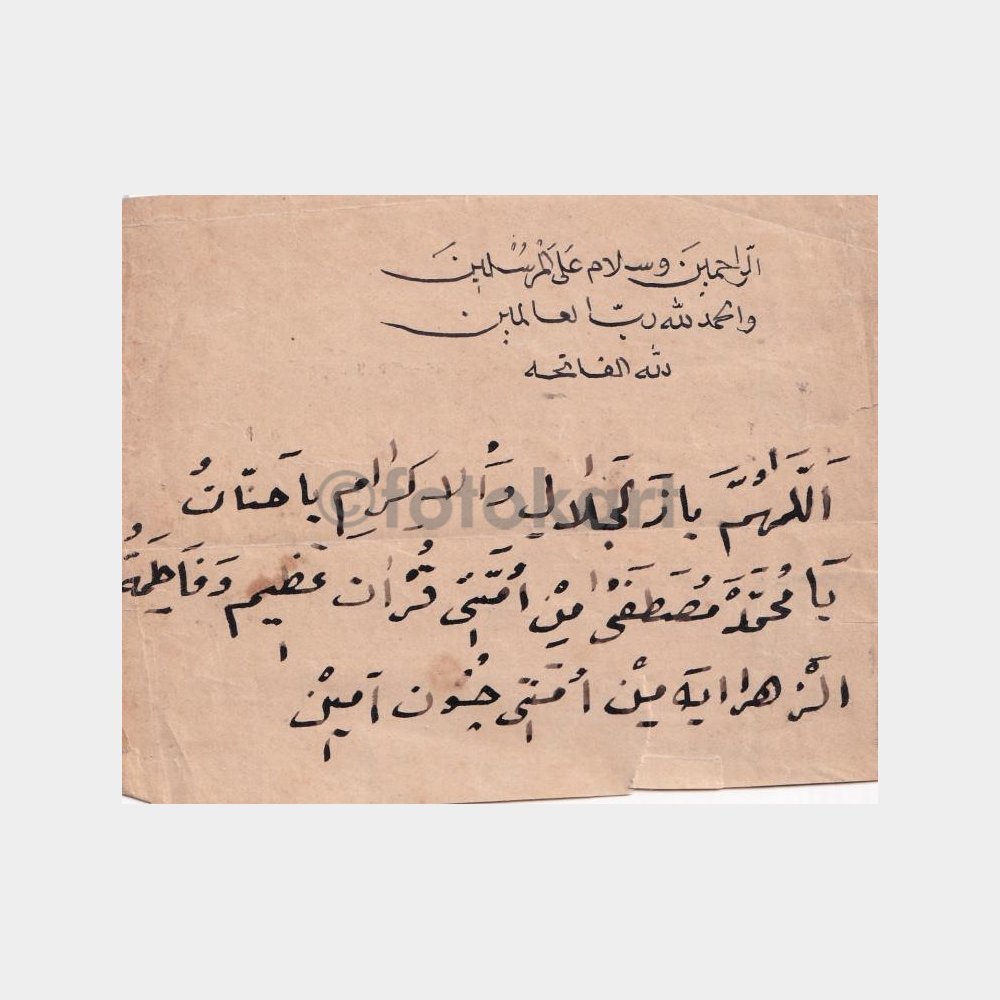 الرَّاحمينَ وسلام عَلَى الْمُرْسْلٖينَ
والحمد لله ربّ العالمين
لله الفاتحه
اَللّٰهُمَّ يا ذَالْجَلَالِ وَالاِكِرَامِ يا حَنّانُ
يَا مُحَمَّدْ مُصَطَفَىٰ مِيْن اُمَّتٖى قُرْاٰن عَظٖيم وَفَاطِمَةُ
الزَّهرا ايَه مِيْن اُمَّتٖى چُون آمِيْن
©fotokart